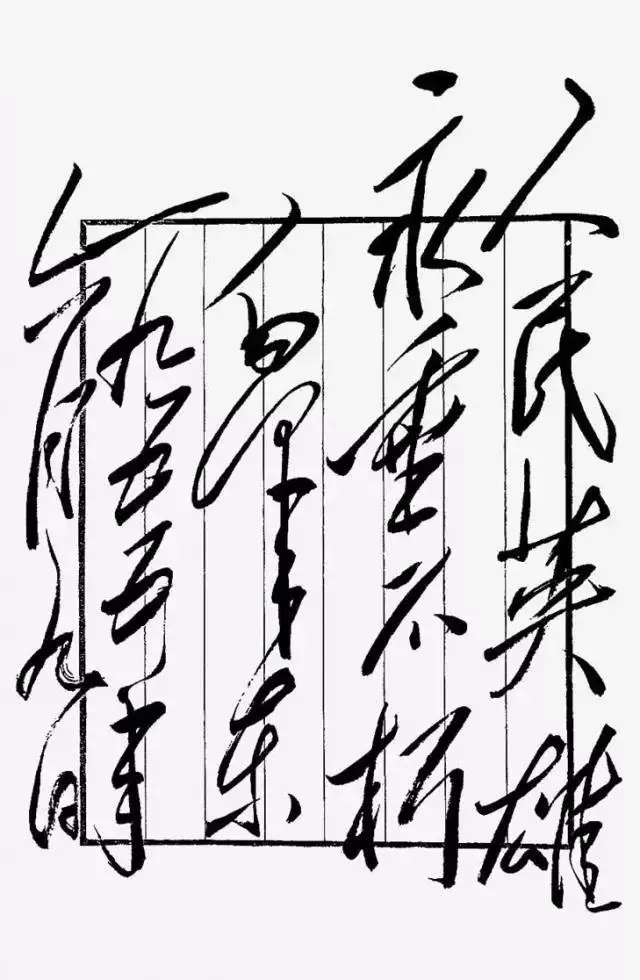 人民英雄
永垂不朽
泽东
一九五五年
六月九日